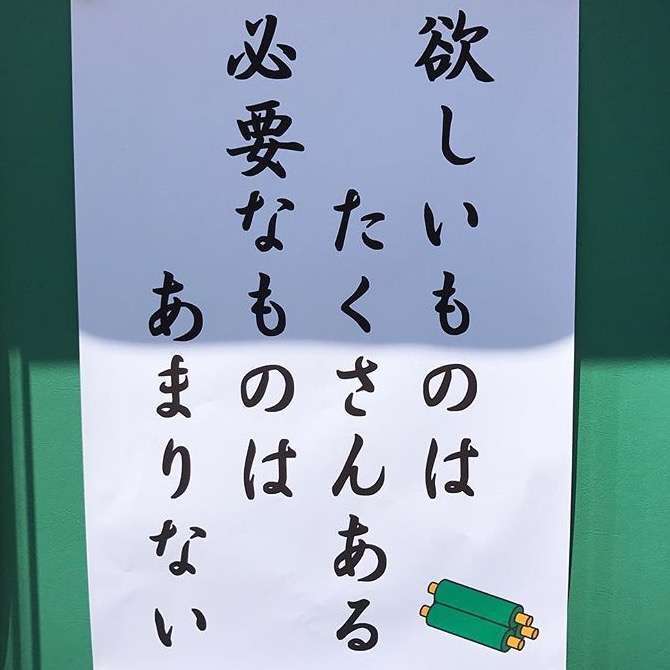 欲しいものは
たくさんある
必要なものは
あまりない